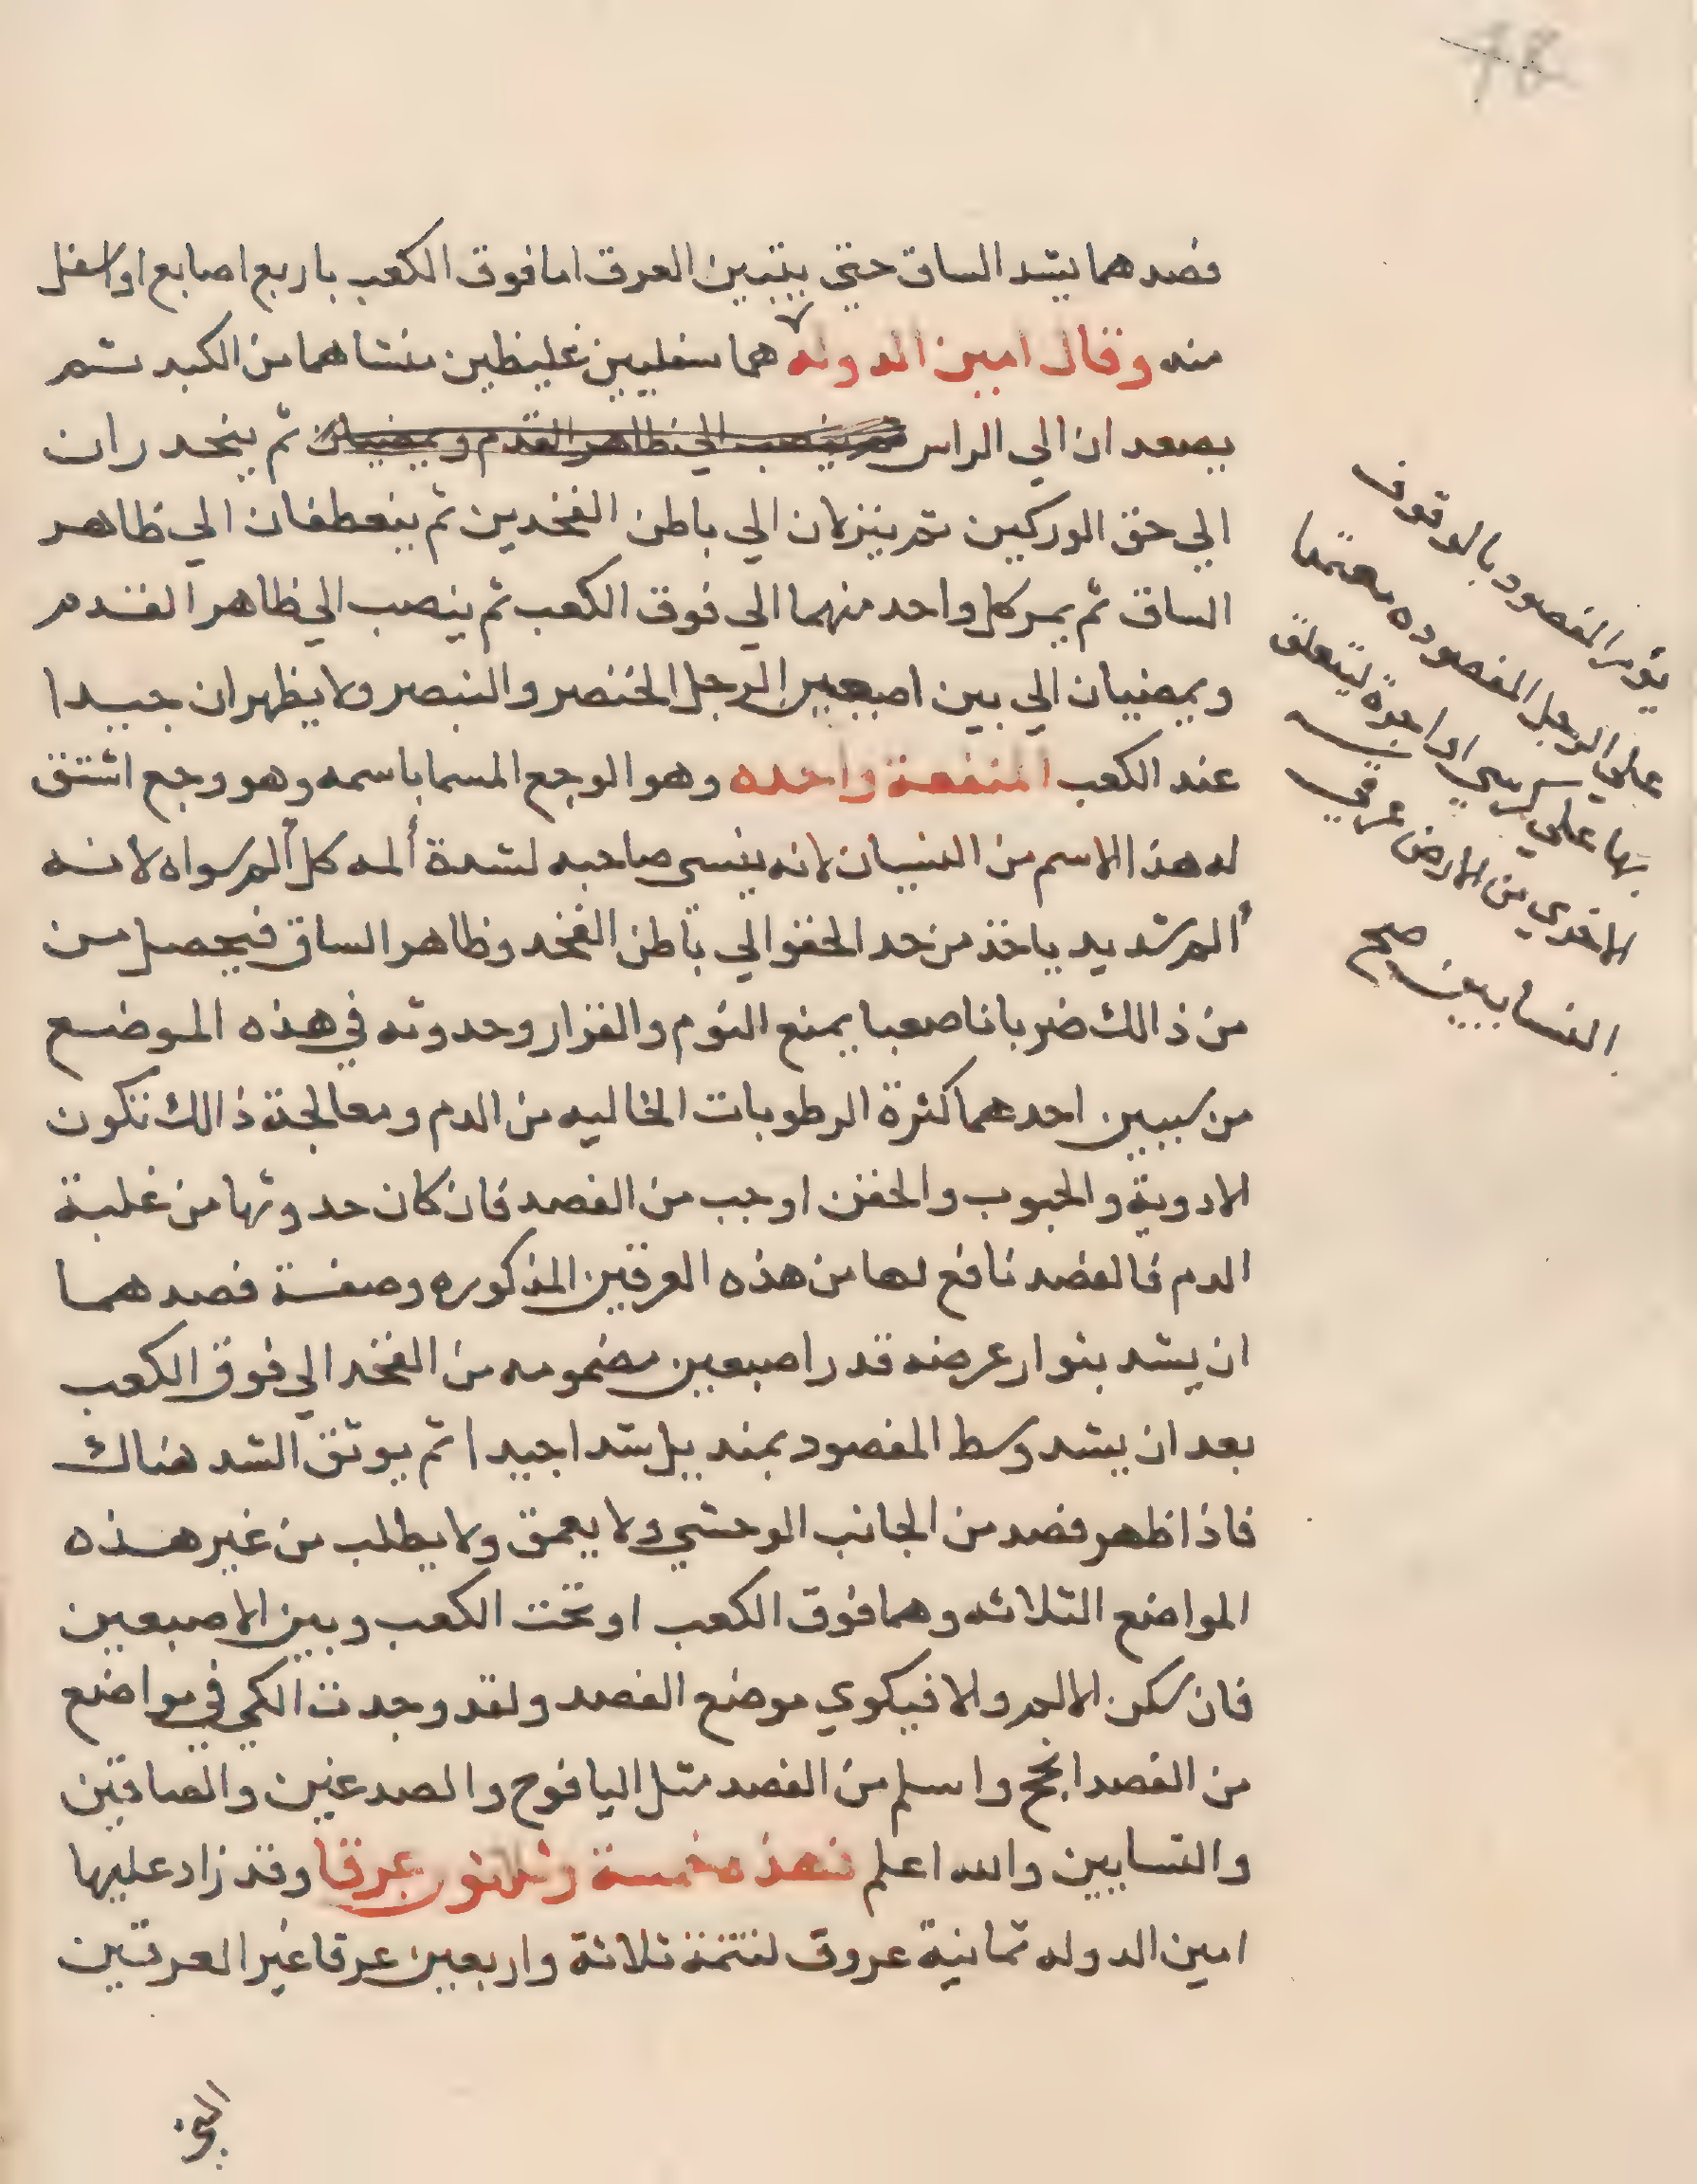 فصدهما يشد الساق حتي يتبين العرق اما فوق الكعب باربع اصابع او اسفل
منه وقال امين الدوله هما سفليين غليظين منشاهما من الكبد ثم
يصعدان الي الراس ثم ينصب الي ظاهر القدم ويمضيان ثم ينحدران
الي حق الوركين ثم ينزلان الي باطن الفخدين ثم ينعطفان الي ظاهر
الساق ثم يمر كل واحد منهما الي فوق الكعب ثم ينصب الي ظاهر القدم
ويمضيان الي بين اصبعين الرجل الخنصر والبنصر ولا يظهران جيدا
عند الكعب المنفعة واحده وهو الوجع المسما باسمه وهو وجع اشتق
له هذا الاسم من النسيان لانه ينسي صاحبه لشدة ألمه كل ألم سواه لانه
ألم شديد ياخذ من حد الحقو الي باطن الفخد وظاهر الساق فيحصل من
من ذالك ضربانا صعبا يمنع النوم والقرار وحدوثه في هذه الموضع
من سببين احدهما كثرة الرطوبات الخاليه من الدم ومعالجة ذالك تكون
الادوية والحبوب والحقن اوجب من الفصد فان كان حدوثها من غلبة
الدم فالفصد نافع لها من هذه العرقين المذكوره وصفة فصدهما
ان يشد بنوار عرضه قدر اصبعين مضمومه من الفخد الي فوق الكعب
بعد ان يشد وسط المفصود بمنديل شدا جيدا ثم يوثق الشد هناك
فاذا ظهر فصد من الجانب الوحشي ولا يعمق ولا يطلب من غير هذه
المواضع الثلاثه وهما فوق الكعب او تحت الكعب وبين الاصبعين
فان سكن الالم والا فيكوي موضع الفصد ولقد وجدت الكي في مواضع
من الفصد انجح واسلم من الفصد مثل اليافوخ والصدغين والصافين
والنسايين والله اعلم فهذه خمسة وثلاثون عرقا وقد زاد عليها
امين الدوله ثمانية عروق لتتمة ثلاثة واربعين عرقا غير العرقين
يؤمر المفصود بالوقوف
علي الرجل المفصوده معتمدا
بها علي كرسي او اجرة ليتعلق
الاخري من الارض عرقي
النسايين صح